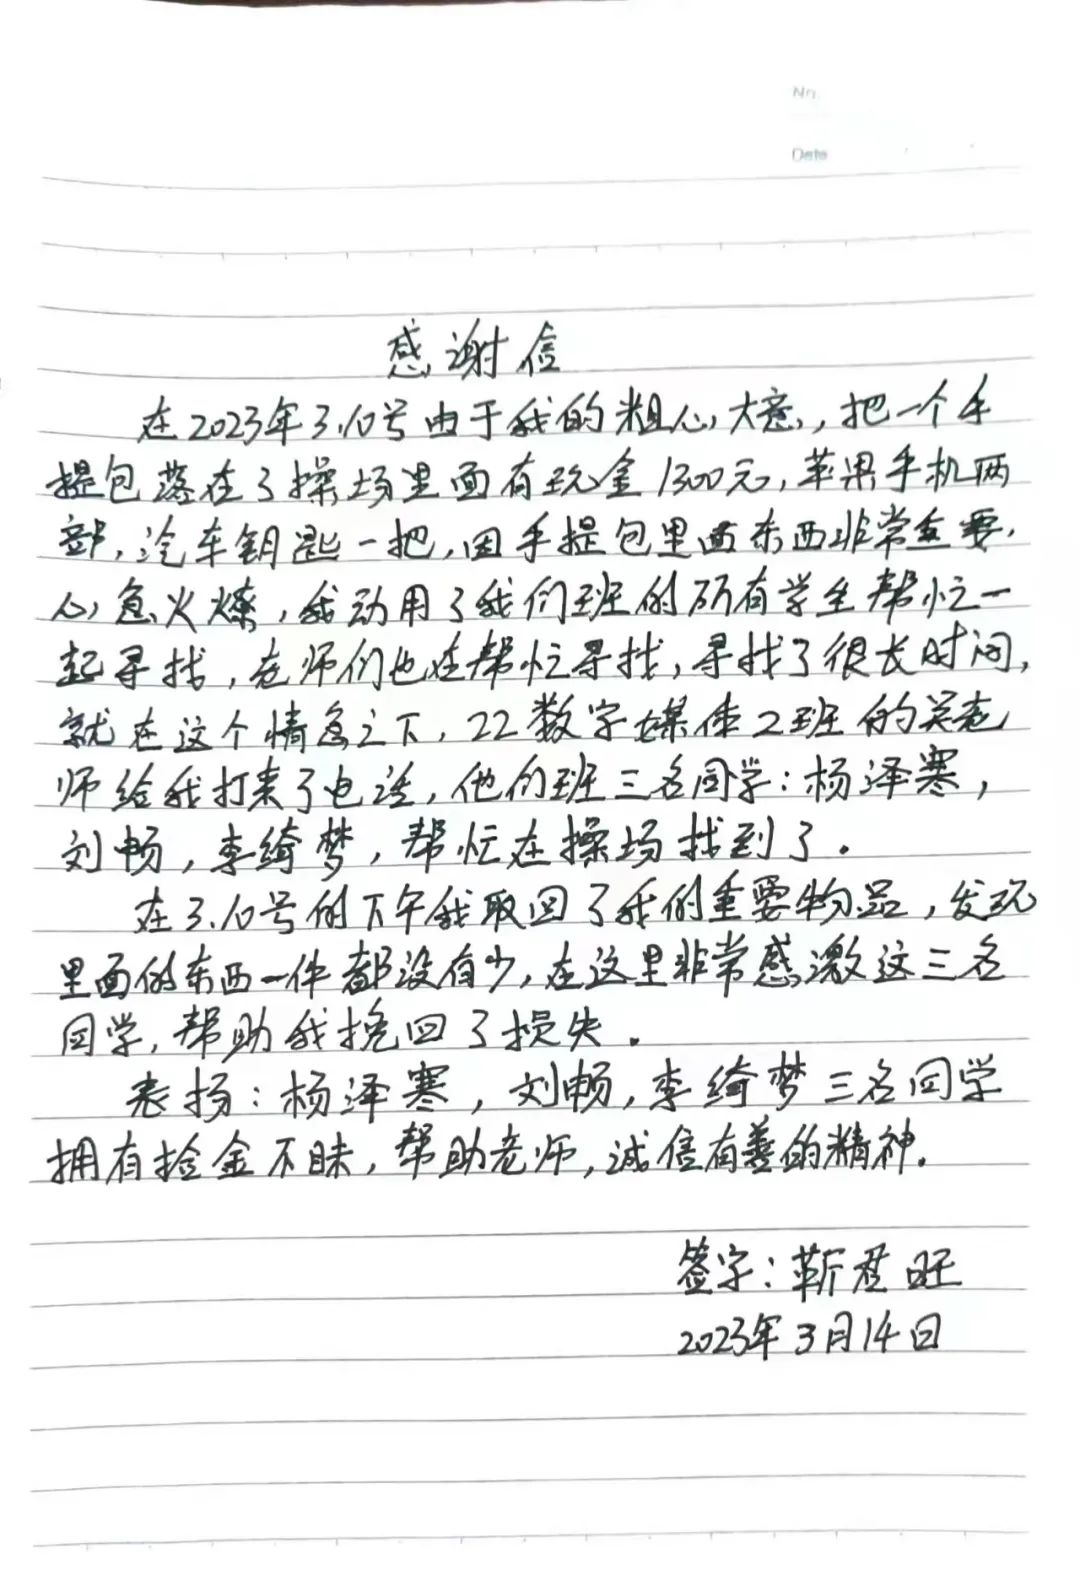 No.
Date
感谢信
在2023年3.10号由于我的粗心大意,把一个手
提包落在了操场里面有现金1300元,苹果手机两
部,汽车钥匙一把,因手提包里面东西非常重要,
心急火燎,我动用了我们班的所有学生帮忙一
起寻找,老师们也在帮忙寻找,寻找了很长时间,
就在这个情急之下,22数字媒体2班的吴老
师给我打来了电话,他们班三名同学:杨泽寒,
刘畅,李绮梦,帮忙在操场找到了.
在3.10号的下午我取回了我的重要物品,发现
里面的东西一件都没有少,在这里非常感激这三名
同学,帮助我挽回了损失.
表扬:杨泽寒,刘畅,李绮梦三名同学
拥有捡金不昧,帮助老师,诚信有善的精神.
签字:靳君旺
2023年3月14日